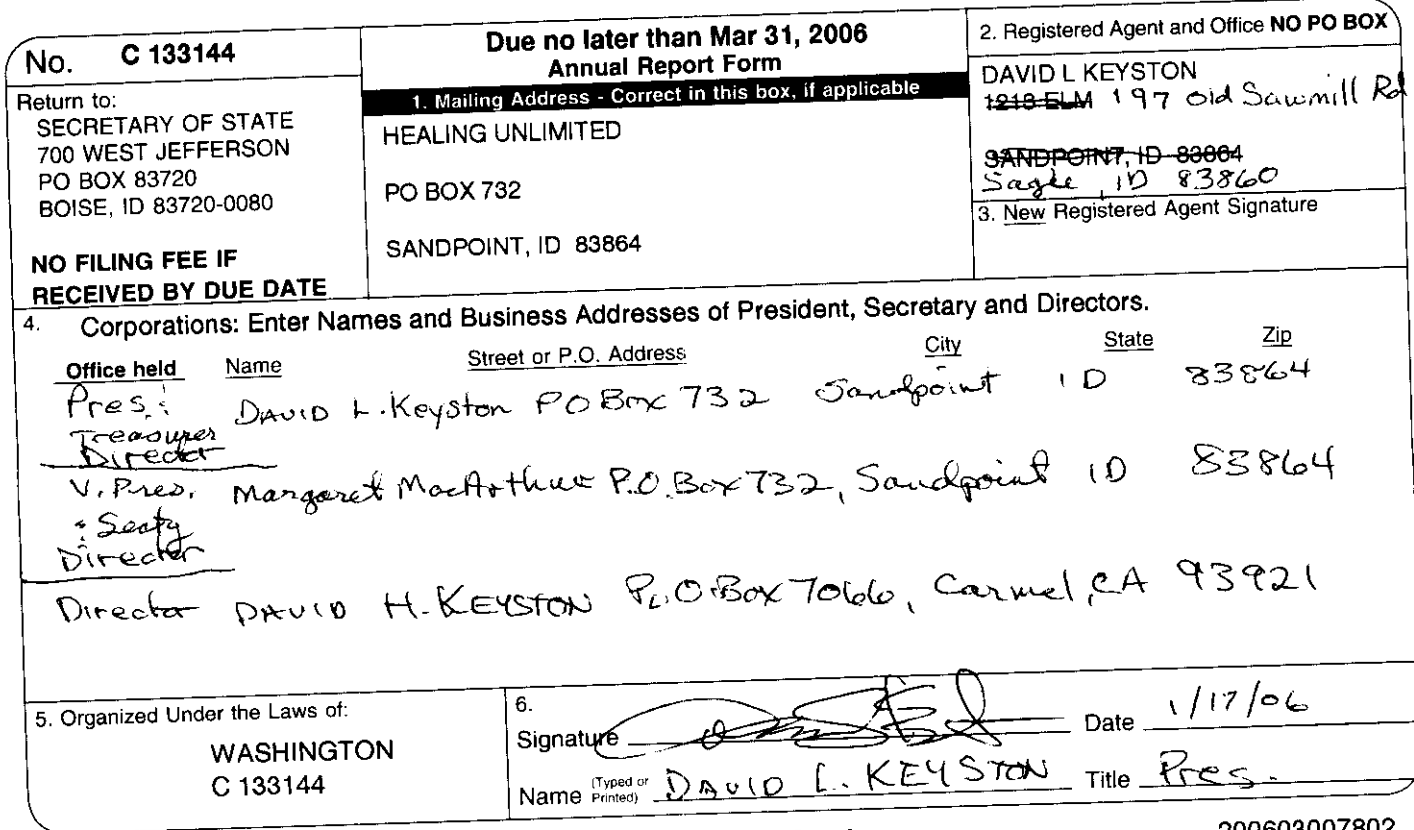 No. C 133144
Return to:
SECRETARY OF STATE
700 WEST JEFFERSON
PO BOX 83720
BOISE, ID 83720-0080
NO FILING FEE IF
RECEIVED BY DUE DATE
Due no later than Mar 31, 2006
Annual Report Form
1. Mailing Address - Correct in this box, if applicable
HEALING UNLIMITED
PO BOX 732
SANDPOINT, ID 83864
2. Registered Agent and Office NO PO BOX
DAVID L KEYSTON
1213 ELM 197 Old Sawmill Rd
SANDPOINT, ID 83864
Sagle, ID 83860
3. New Registered Agent Signature
4. Corporations: Enter Names and Business Addresses of President, Secretary and Directors.
Office held Name Street or P.O. Address City State Zip
Pres. DAVID L. Keyston PO Box 732 Sandpoint ID 83864
Treasurer
Director
V. Pres. Margaret MacArthur P.O. Box 732, Sandpoint ID 83864
Director
Director DAVID H. KEYSTON P.O. Box 7066, Carmel, CA 93921
5. Organized Under the Laws of:
WASHINGTON
C 133144
6.
Signature Date 1/17/06
Name (Typed or Printed) DAVID L. KEYSTON Title Pres.
200603007802